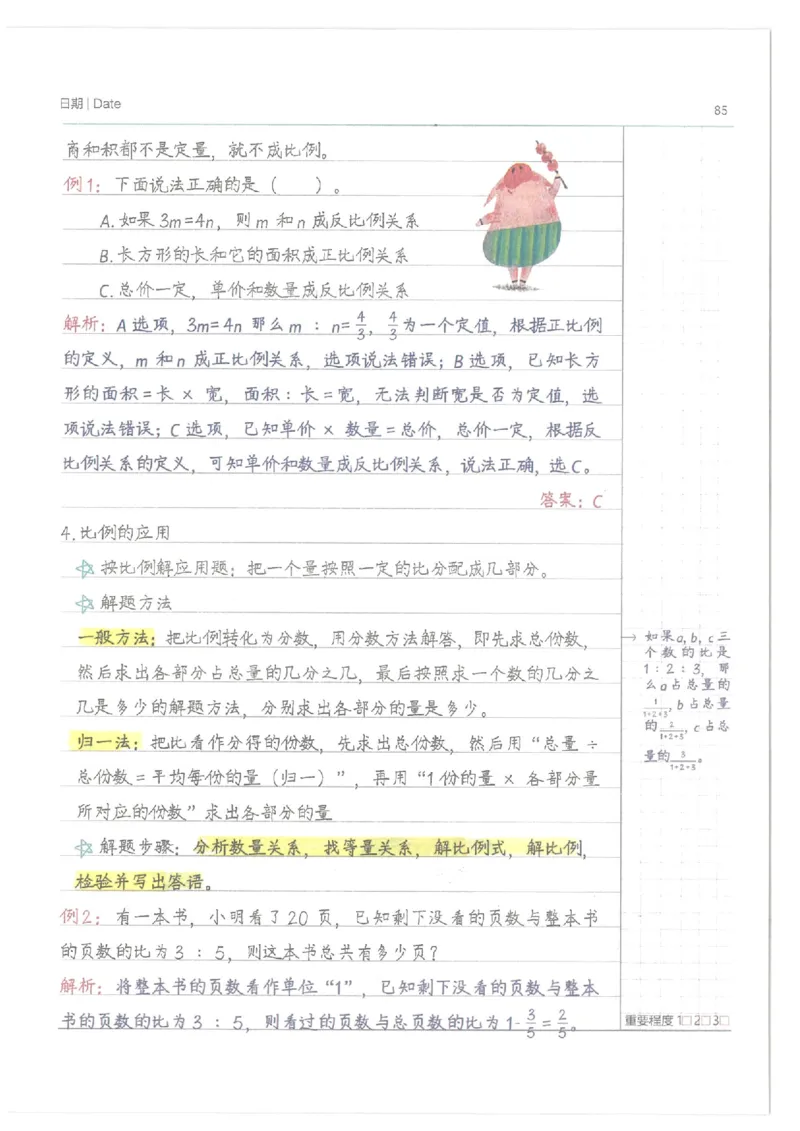 日期 | Date
85
商和积都不是定量，就不成比例。
例1：下面说法正确的是（　　）。
A.如果3m=4n，则m和n成反比例关系
B.长方形的长和它的面积成正比例关系
C.总价一定，单价和数量成反比例关系
解析：A选项，3m=4n那么m：n=4/3，4/3为一个定值，根据正比例
的定义，m和n成正比例关系，选项说法错误；B选项，已知长方
形的面积=长×宽，面积：长=宽，无法判断宽是否为定值，选
项说法错误；C选项，已知单价×数量=总价，总价一定，根据反
比例关系的定义，可知单价和数量成反比例关系，说法正确，选C。
答案：C
4.比例的应用
☆按比例解应用题：把一个量按照一定的比分配成几部分。
☆解题方法
一般方法：把比例转化为分数，用分数方法解答，即先求总份数，
然后求出各部分占总量的几分之几，最后按照求一个数的几分之
几是多少的解题方法，分别求出各部分的量是多少。
归一法：把比看作分得的份数，先求出总份数，然后用“总量÷
总份数=平均每份的量（归一）”，再用“1份的量×各部分量
所对应的份数”求出各部分的量
☆解题步骤：分析数量关系，找等量关系，解比例式，解比例，
检验并写出答语。
例2：有一本书，小明看了20页，已知剩下没看的页数与整本书
的页数的比为3：5，则这本书总共有多少页？
解析：将整本书的页数看作单位“1”，已知剩下没看的页数与整本
书的页数的比为3：5，则看过的页数与总页数的比为1-3/5=2/5。
→如果a,b,c三
个数的比是
1：2：3，那
么a占总量的
1/1+2+3，b占总量
的2/1+2+3，c占总
量的3/1+2+3。
重要程度 1□2□3□